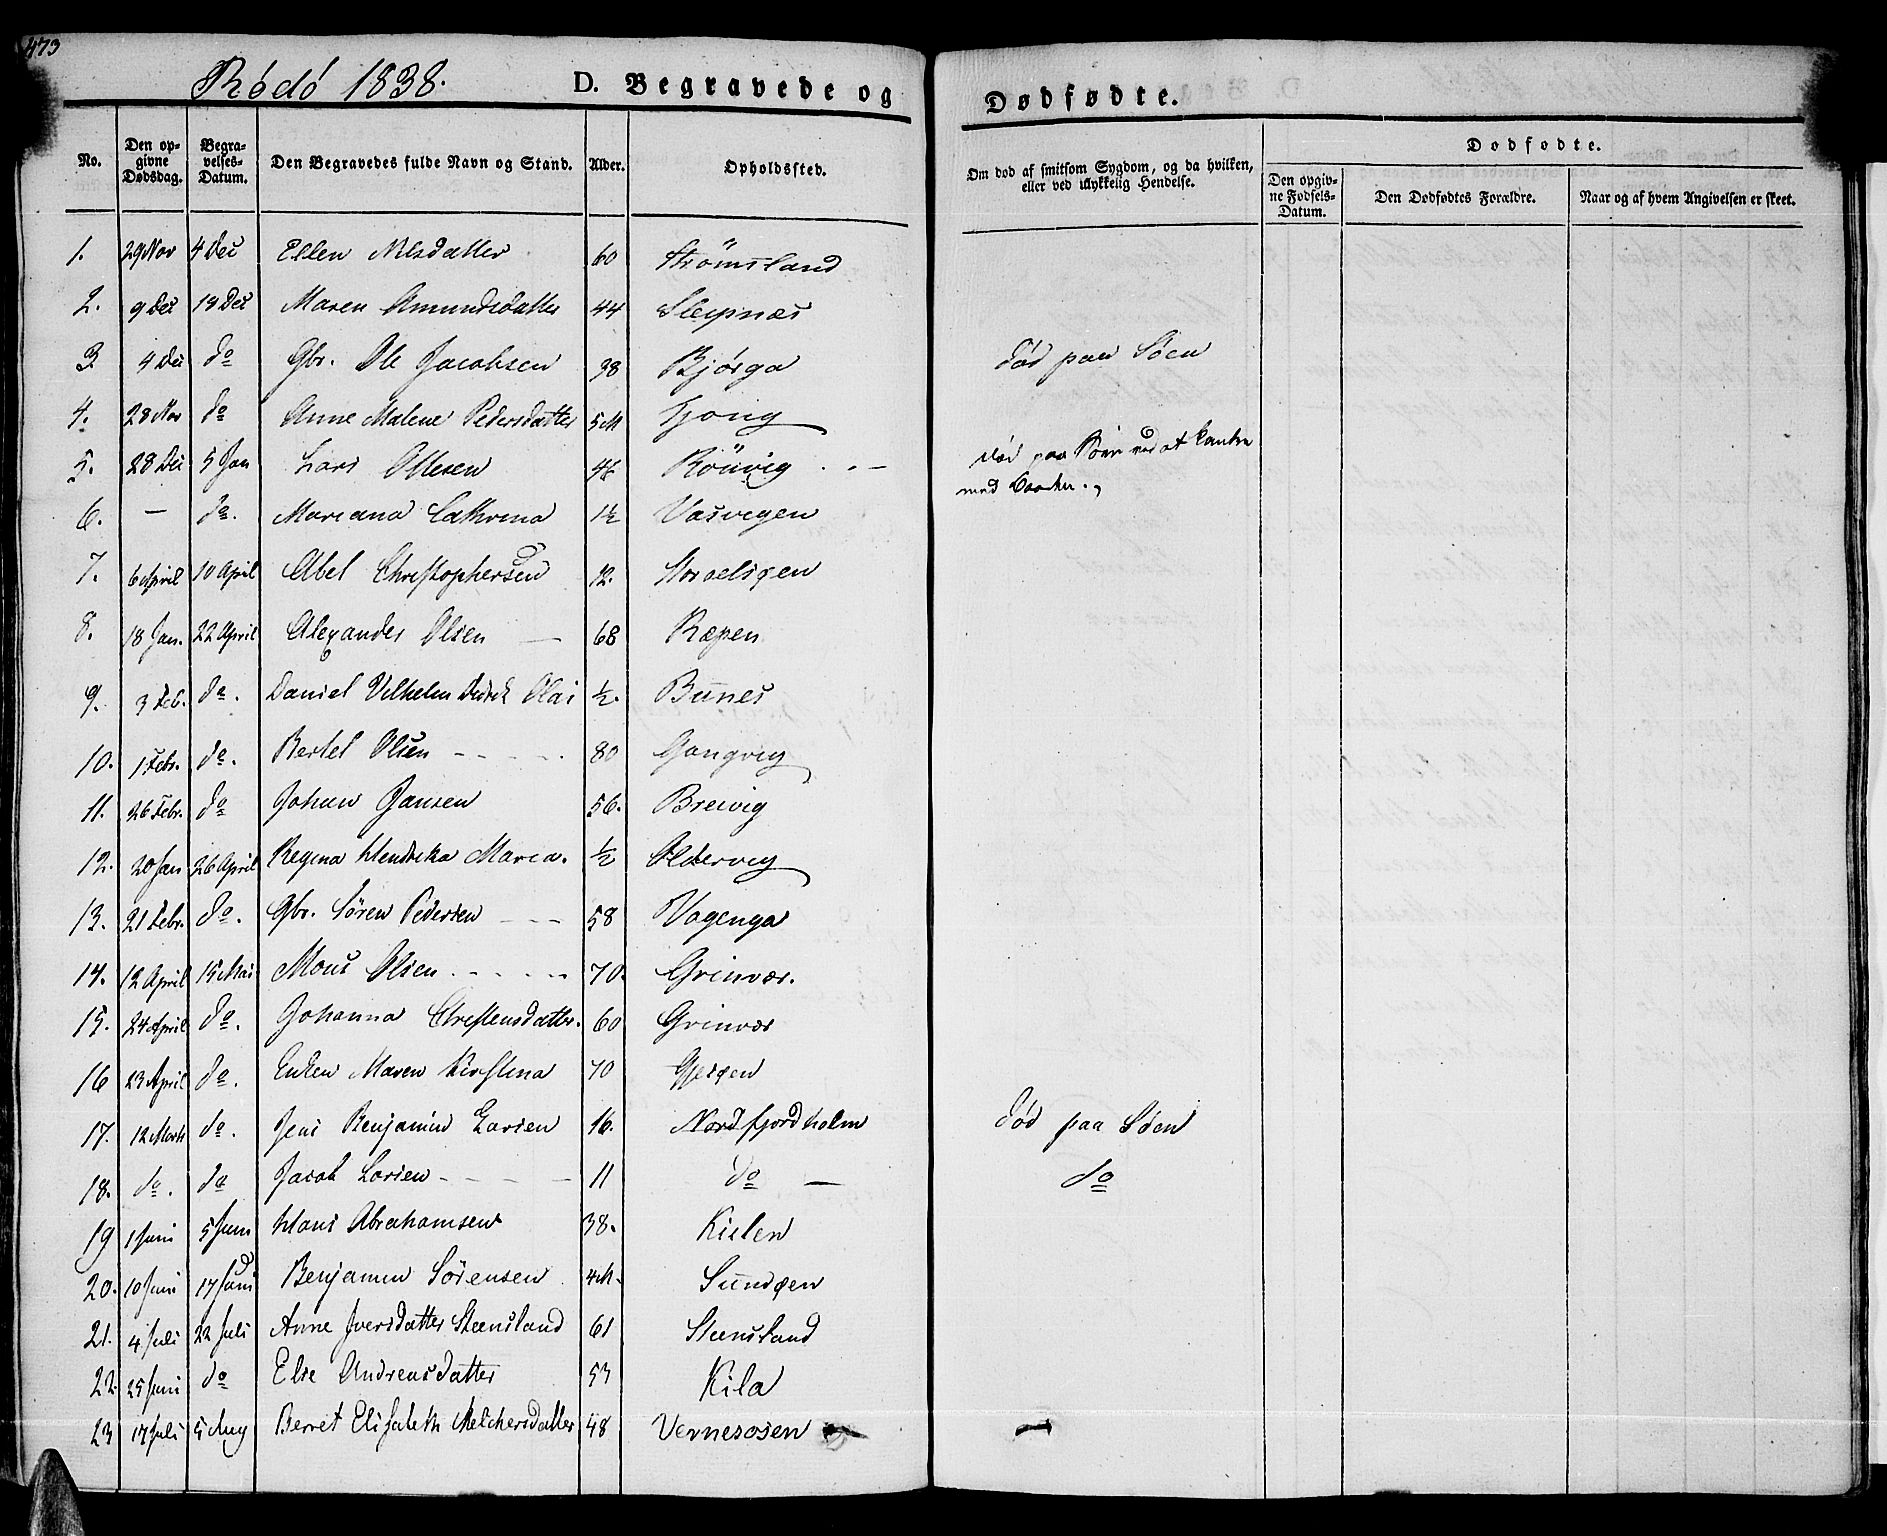 473
Rödö 1838. D. Begravede og Dødfødte.
No. Den opgivne Dødsdag. Begravelses-Datum. Den Begravedes fulde Navn og Stand. Alder. Opholdssted. Om død af smitsom Sygdom, og da hvilken, eller ved ulykkelig Hendelse. Dødfødte.
Den opgivne Fødsels-Datum. Den Dødfødtes Forældre. Naar og af hvem Angivelsen er skeet.
1. 29 Nov 4 Dec Ellen Nilsdatter 60 Strömsland
2. 9 Dec 19 Dec Maren Amundsdatter 44 Sleipnæs
3 4 Dec do Gbr. Ole Jacobsen 38 Bjørga död paa Söen
4. 28 Nov do Anne Malene Pedersdatter 5 M Tjong
5. 28 Dec 5 Jan Lars Ollesen Rönvig död paa Söen ved at kantre
med Baaden.
6. — do. Mariana Cathrina 1½ Vasvigen
7. 6 April 10 April Abel Christophersen 12. Storselsöen
8. 18 Jan. 22 April Alexander Olsen — 68 Ræpen
9. 3 Feb. do. Daniel Vilhelm Didrik Olai ½. Bunes
10. 1 Febr. do. Bertel Olsen - - - - 80 Gangvig
11. 26 Febr. do Johan Jansen 56. Breivig
12. 20 Jan 26 April Regina Hendrika Maria. ½ Oldervig
13. 21 Febr. do. Gbr. Sören Pedersen - - - 58 Vagenga
14. 12 April 15 Mai Mons Olsen - - - - - 70. Grinvær.
15. 24 April do. Johanna Christensdatter. 60 Grinvær
16 23 April do. Enken Maren Kirstina 70 Gjesöen
17. 12 Marts do. Jens Benjamin Larsen 16. Nordfjordholm död paa Söen
18. do. do Jacob Larsen - - - - 11 do — do
19 1 Juni 5 Juni Hans Abrahamsen 38. Kilen
20. 10 Juni 17 Juni Benjamin Sörensen 4 M. Sundöen
21. 4 Juli 22 Juli Anne Iversdatter Steensland 61 Steensland
22. 25 Juni do Else Andreasdatter 53 Kila
23 17 Juli 5 Aug Berret Elisabeth Melchersdatter 48 Vernesosen —